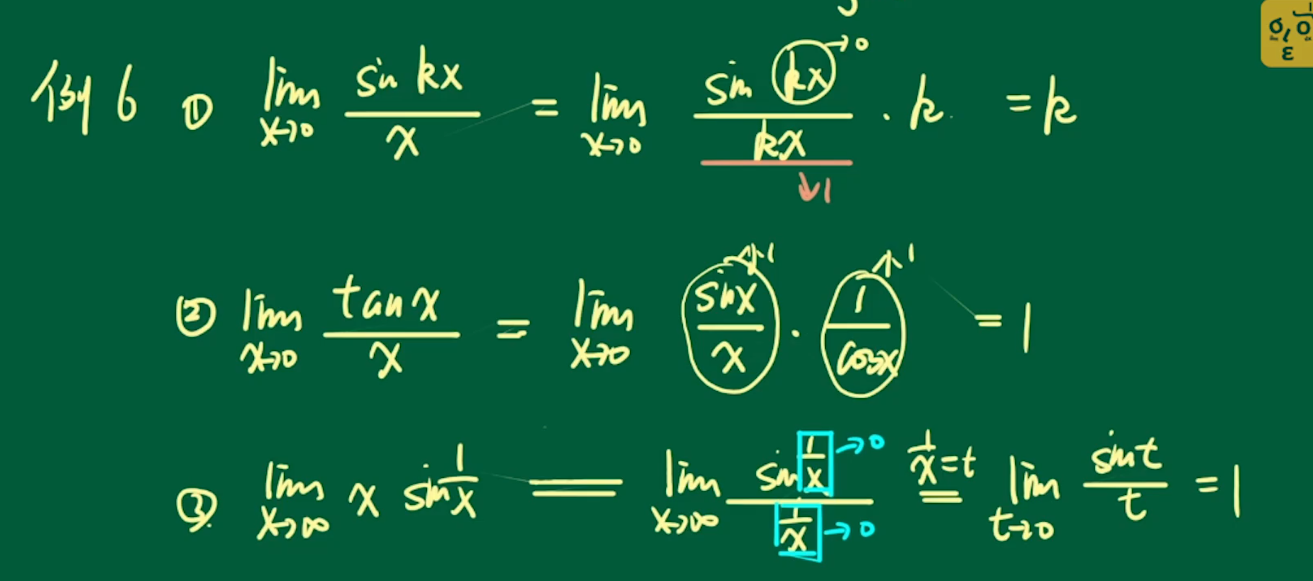 例6 ① lim x→0 sin kx / x = lim x→0 sin kx / kx · k = k
→0
↓1
② lim x→0 tan x / x = lim x→0 sin x / x · 1 / cos x = 1
→1 →1
③ lim x→∞ x sin 1/x = lim x→∞ sin 1/x / 1/x 1/x = t = lim t→0 sin t / t = 1
→0
→0